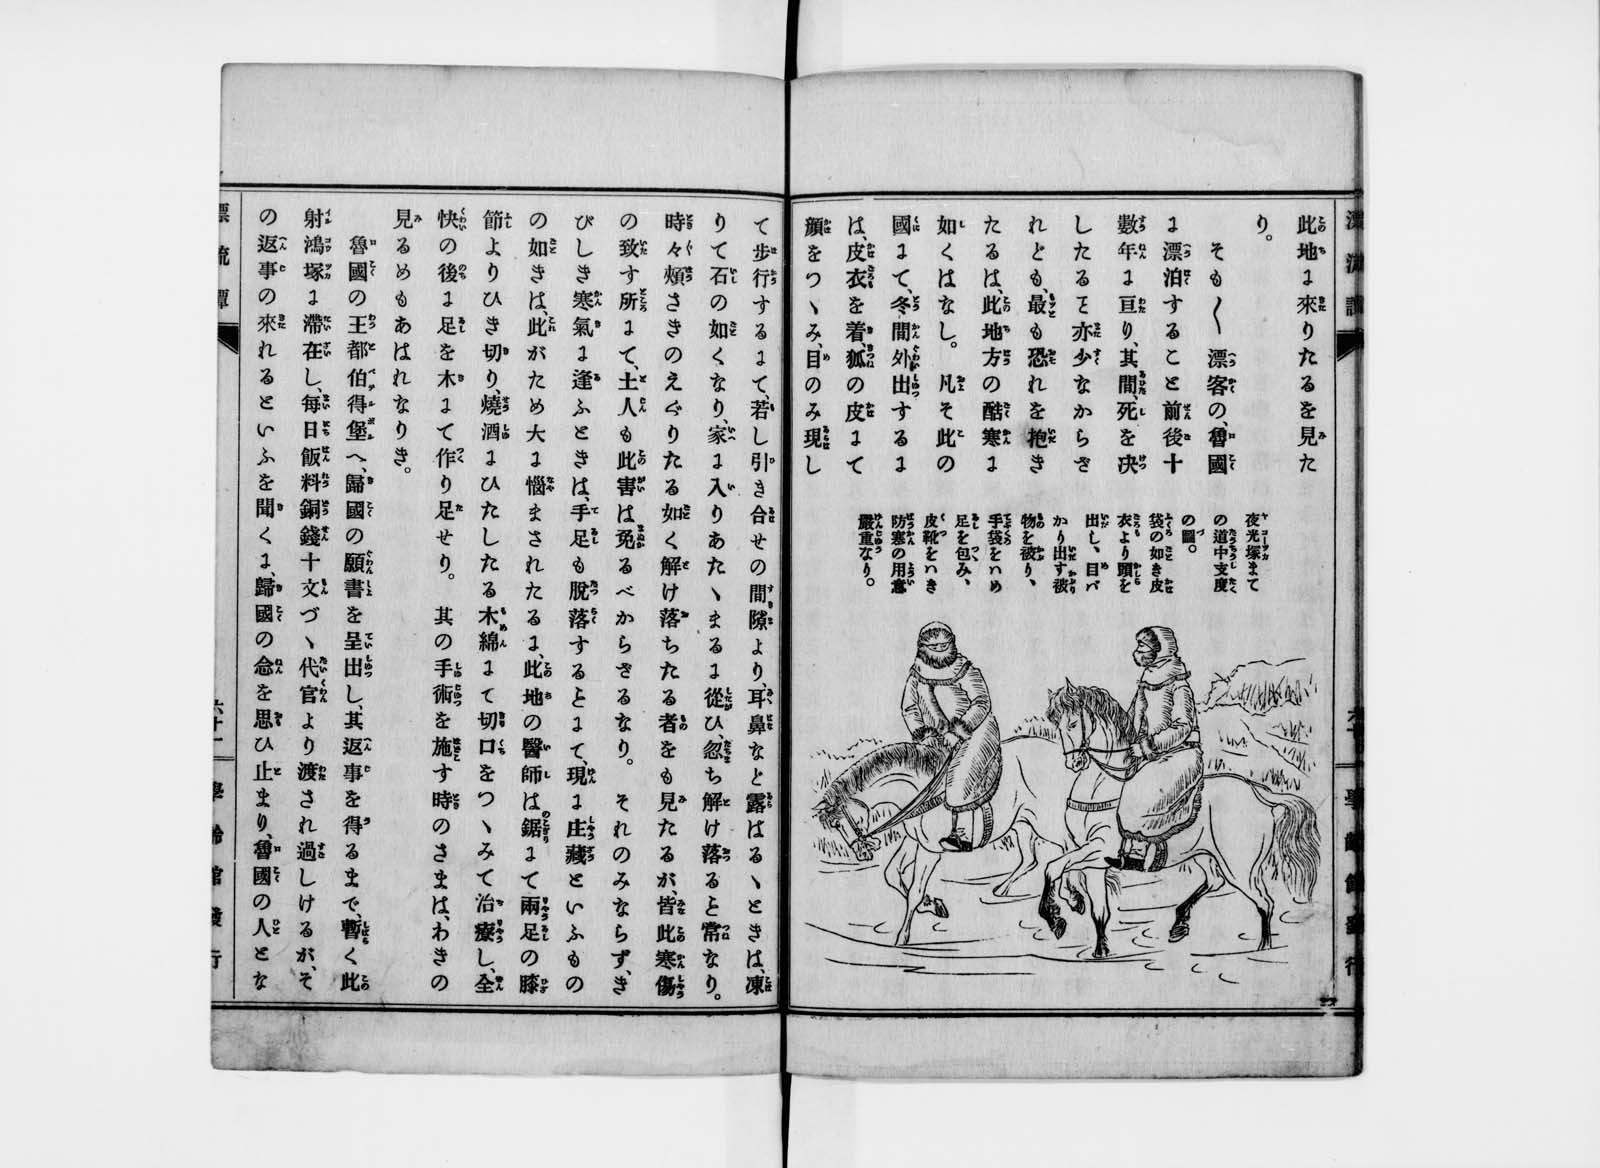 此地に來りたるを見た
り。
そも〱漂客の、魯國
に漂泊すること前後十
數年に亘り、其間、死を决
したるヿ亦少なからざ
れども、最も恐れを抱き
たるは、此地方の酷寒に
如くはなし。凡そ此の
國にて、冬間外出するに
は、皮衣を着、狐の皮にて
顔をつゝみ、目のみ現し
夜光塚まて
の道中支度
の圖。
袋の如き皮
衣より頭を
出し、目バ
かり出す被
物を被り、
手袋をはめ
足を包み、
皮靴をはき
防寒の用意
嚴重なり。
て歩行するにて、若し引き合せの間隙より、耳鼻なと露はるゝときは、凍
りて石の如くなり、家に入りあたゝまるに從ひ、忽ち解け落るヿ常なり。
時々頬さきのえぐりたる如く解け落ちたる者をも見たるが、皆此寒傷
の致す所にて、土人も此害は免るべからざるなり。それのみならず、き
びしき寒氣に逢ふときは、手足も脫落するヿにて、現に庄藏といふもの
の如きは、此がため大に惱まされたるに、此地の醫師は鋸にて兩足の膝
節よりひき切り、燒酒にひたしたる木綿にて切口をつゝみて治療し、全
快の後に足を木にて作り足せり。其の手術を施す時のさまは、わきの
見るめもあはれなりき。
魯國の王都伯得堡へ、歸國の願書を呈出し、其返事を得るまで、暫く此
射鴻塚に滯在し、毎日飯料銅錢十文づゝ代官より渡され過しけるが、そ
の返事の來れるといふを聞くに、歸國の念を思ひ止まり、魯國の人とな
漂流譚
六十一
學齡館發行